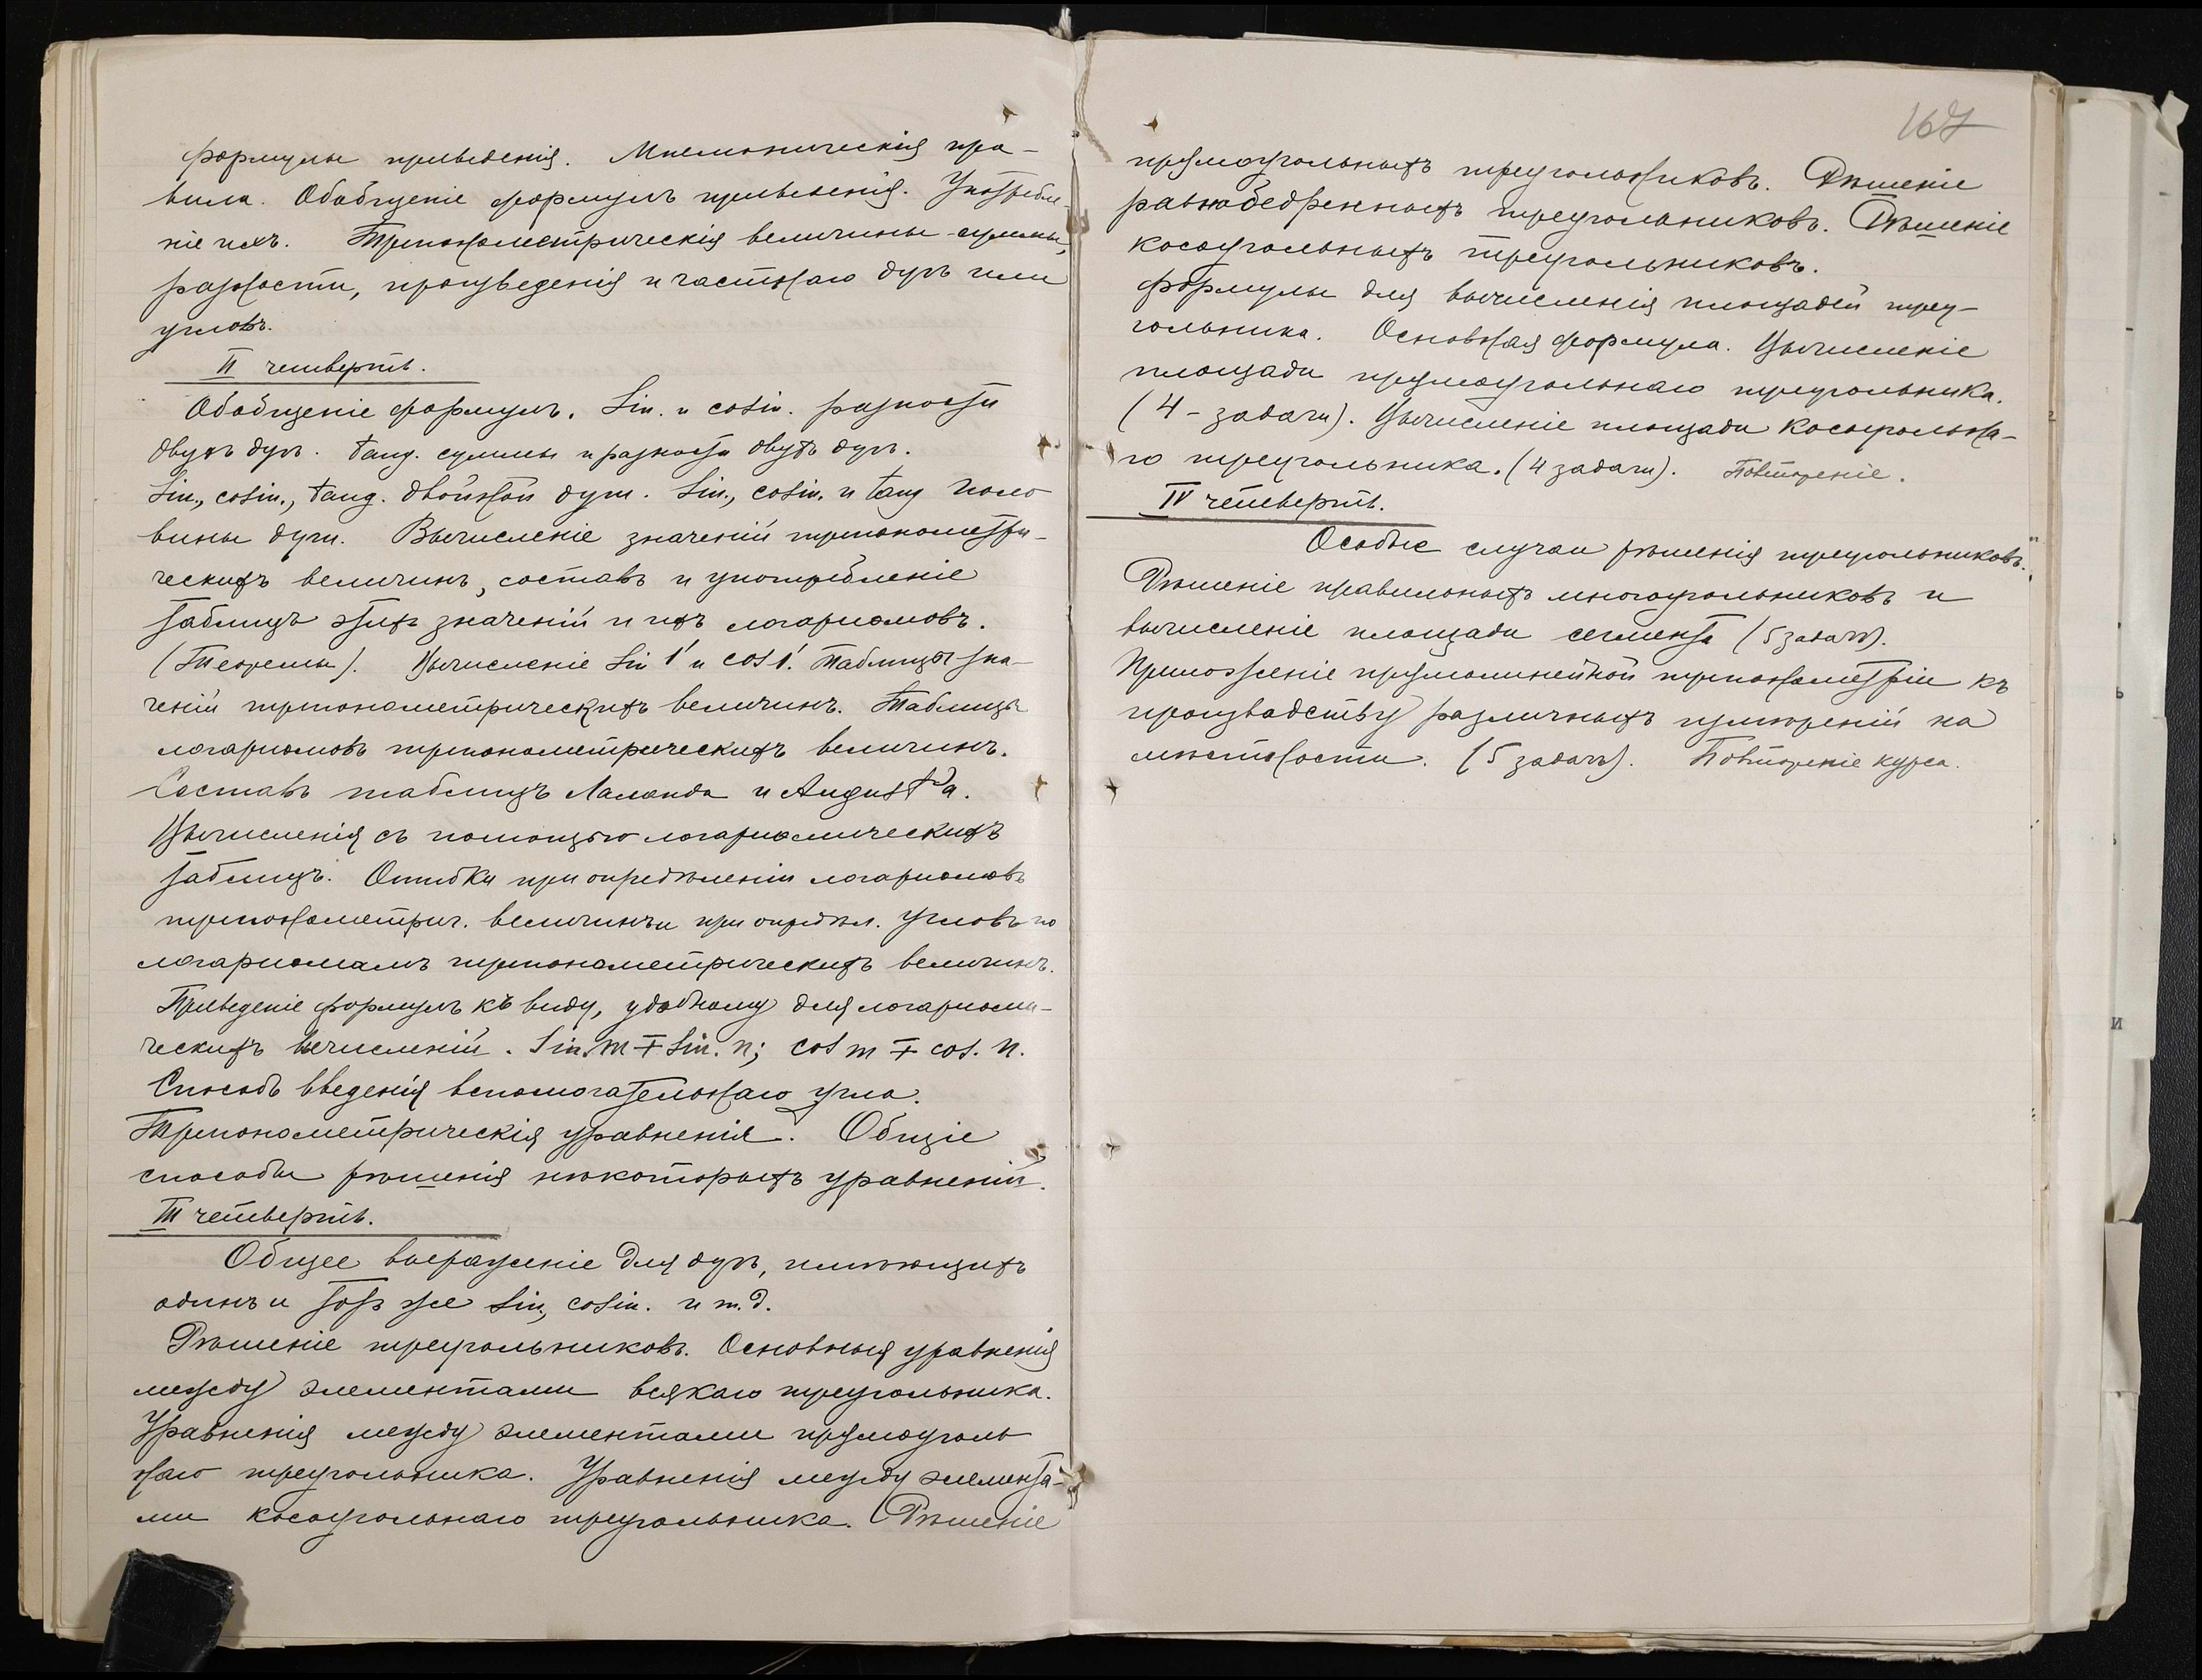 формулы приведенія. Мнемоническія пра-
вила. Обобщеніе формулъ приведенія. Употребле-
ніе ихъ. Тригонометрическія величины суммы,
разности, произведенія и частнаго дугъ или
угловъ.
II четверть.
Обобщеніе формулъ. Sin. и cosin. разности
двухъ дугъ. tang. суммы и разности двухъ дугъ.
Sin., cosin., tang. двойной дуги. Sin., cosin. и tang поло
вины дуги. Вычисленіе значеній тригонометри-
ческихъ величинъ, составъ и употребленіе
таблицъ этихъ значеній и ихъ логариѳмовъ.
(Теоремы). Вычисленіе Sin 1' и cos 1'. Таблицы зна-
ченій тригонометрическихъ величинъ. Таблицы
логариѳмовъ тригонометрическихъ величинъ.
Составъ таблицъ Лаланда и August'a.
Вычисленія съ помощью логариѳмическихъ
таблицъ. Ошибки при опредѣленіи логариѳмовъ
тригонометрич. величинъ и при опредѣл. угловъ по
логариѳмамъ тригонометрическихъ величинъ.
Приведеніе формулъ къ виду, удобному для логариѳми-
ческихъ вычисленій. Sin. m ∓ Sin. n; cos m ∓ cos. n.
Способъ введенія вспомогательнаго угла.
Тригонометрическія уравненія. Общіе
способы рѣшенія нѣкоторыхъ уравненій.
III четверть.
Общее выраженіе для дугъ, имѣющихъ
одинъ и тотъ же Sin., cosin. и т.д.
Рѣшеніе треугольниковъ. Основныя уравненія
между элементами всякаго треугольника.
Уравненія между элементами прямоуголь
наго треугольника. Уравненія между элемента-
ми косоугольнаго треугольника. Рѣшеніе
167
прямоугольныхъ треугольниковъ. Рѣшеніе
равнобедренныхъ треугольниковъ. Рѣшеніе
косоугольныхъ треугольниковъ.
Формулы для вычисленія площадей треу-
гольника. Основная формула. Вычисленіе
площади прямоугольнаго треугольника.
(4 - задачи). Вычисленіе площади косоугольна-
го треугольника. (4 задачи). Повтореніе.
IV четверть.
Особые случаи рѣшенія треугольниковъ.
Рѣшеніе правильныхъ многоугольниковъ и
вычисленіе площади сегмента (5 задачъ).
Приложеніе прямолинейной тригонометріи къ
производству различныхъ измѣреній на
мѣстности. (5 задачъ). Повтореніе курса.